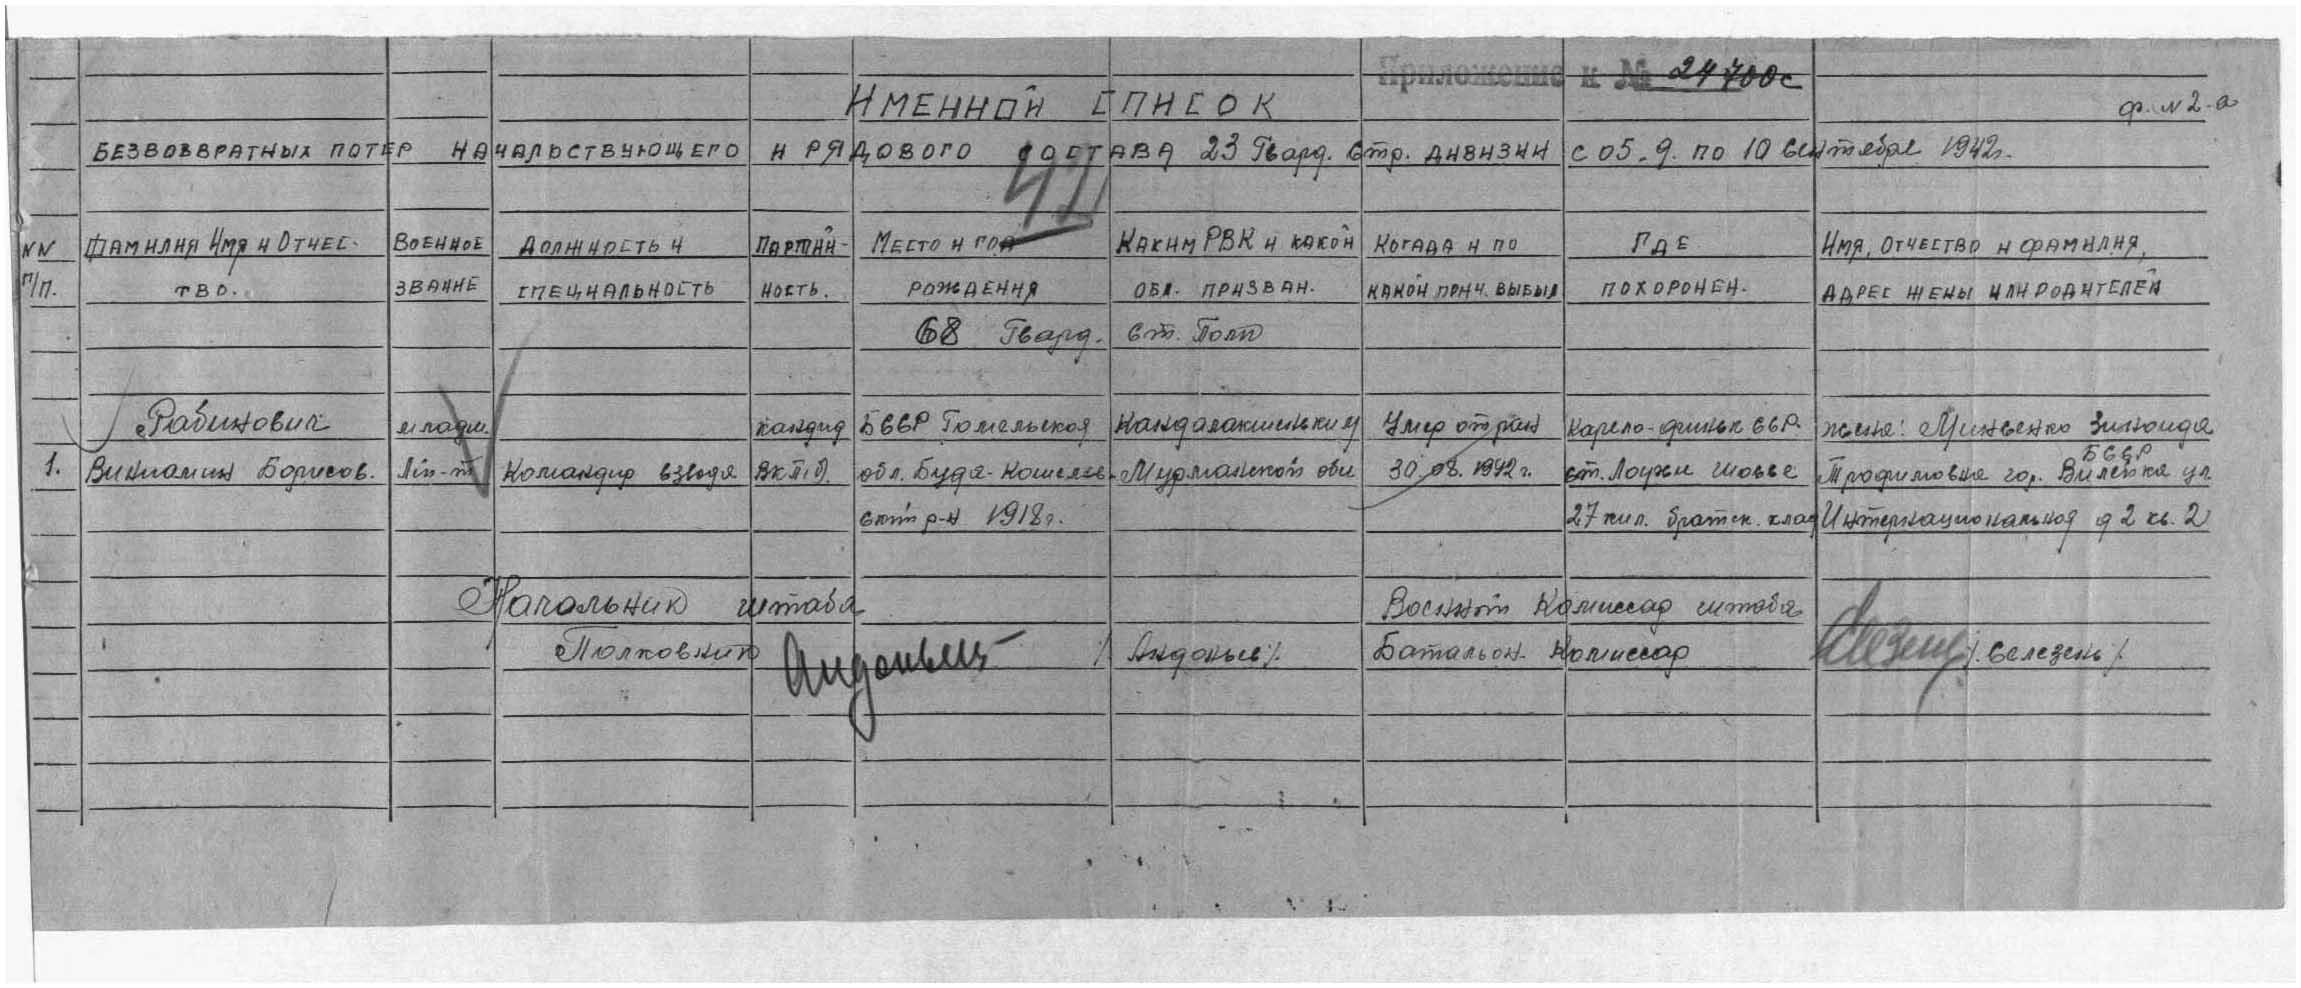 Приложение к № 24700с
ИМЕННОЙ СПИСОК
ф. N 2-а
БЕЗВОЗВРАТНЫХ ПОТЕР НАЧАЛЬСТВУЮЩЕГО И РЯДОВОГО СОСТАВА 23 Гвард. Стр. ДИВИЗИИ С 05.9. ПО 10 Сентября 1942г.
NN ФАМИЛИЯ ИМЯ И ОТЧЕС- ВОЕННОЕ ДОЛЖНОСТЬ И ПАРТИЙ- МЕСТО И ГОД КАКИМ РВК И КАКОЙ КОГАДА И ПО ГДЕ ИМЯ, ОТЧЕСТВО И ФАМИЛИЯ,
П/П. ТВО. ЗВАНИЕ СПЕЦИАЛЬНОСТЬ НОСТЬ. РОЖДЕНИЯ ОБЛ. ПРИЗВАН. КАКОЙ ПРИЧ. ВЫБЫЛ ПОХОРОНЕН. АДРЕС ЖЕНЫ ИЛИ РОДИТЕЛЕЙ
68 Гвард. Ст. Полк
Рабинович младш. кандид БССР Гомельской Кандалакшским Умер от ран Карело-финск ССР. жена: Зиноида
БССР
1. Вениамин Борисов. Лей-т Командир взвода ВКП(б). обл. Буда-Кошелев- Мурманской обл 30.08.1942г. ст. Лоухи шоссе Трофимовна гор. Вилейка ул.
ский р-н 1918г. 27 кил. братск. клад Интернациональная д 2 кв. 2
Начальник штаба Военный Комиссар штаба
Полковник / Андоньев / Батальон. Комиссар /. Селезень /